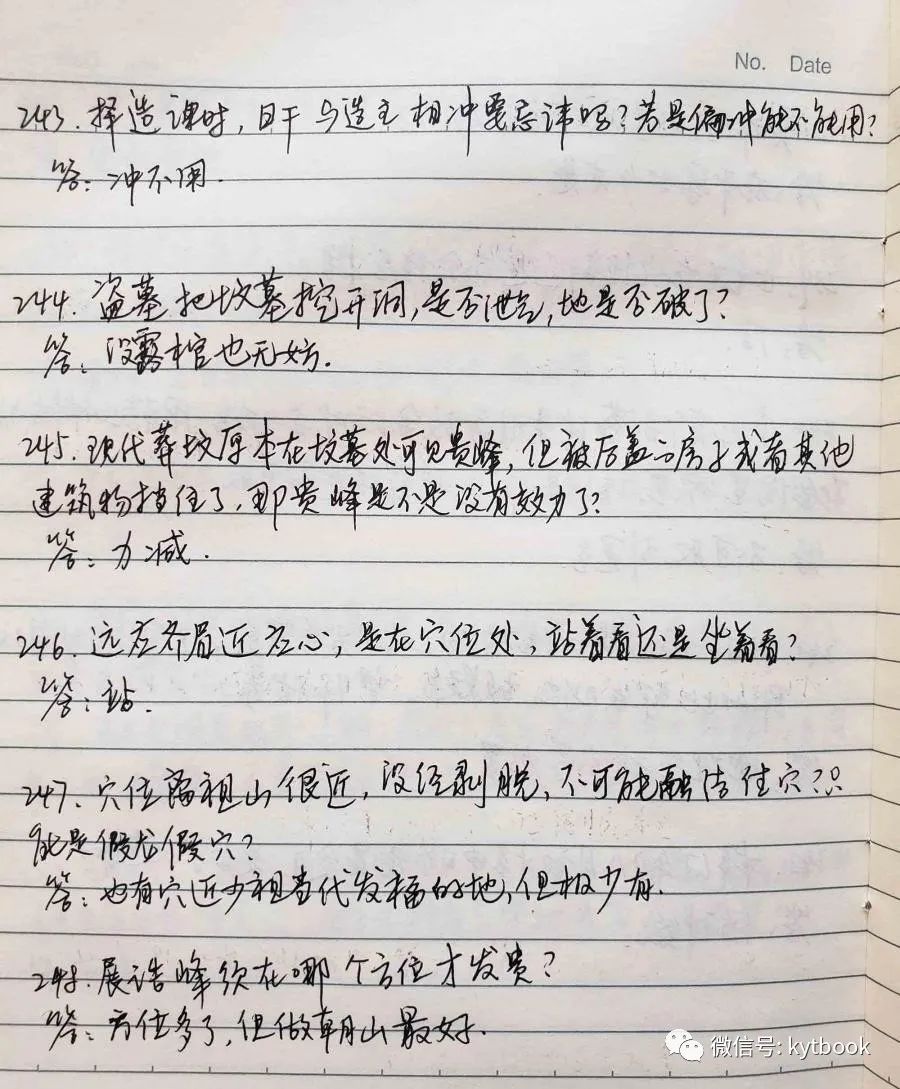 No. Date
243. 择造课时，日干与造主相冲要忌讳吗？若是偏冲能不能用？
答：冲不用.
244. 盗墓把坟墓挖开洞，是否泄气，地是否破了？
答：没露棺也无妨.
245. 现代葬坟原本在坟墓处可见贵峰，但被后盖了房子或者其他
建筑物挡住了，那贵峰是不是没有效力了？
答：力减.
246. 远左齐眉近左心，是在穴位处，站着看还是坐着看？
答：站.
247. 穴位离祖山很近，没经剥脱，不可能融结佳穴？只
能是假龙假穴？
答：也有穴近少祖当代发福的地，但极少有.
248. 展诰峰须在哪个方位才发贵？
答：方位多了，但做朝山最好.
微信号: kytbook